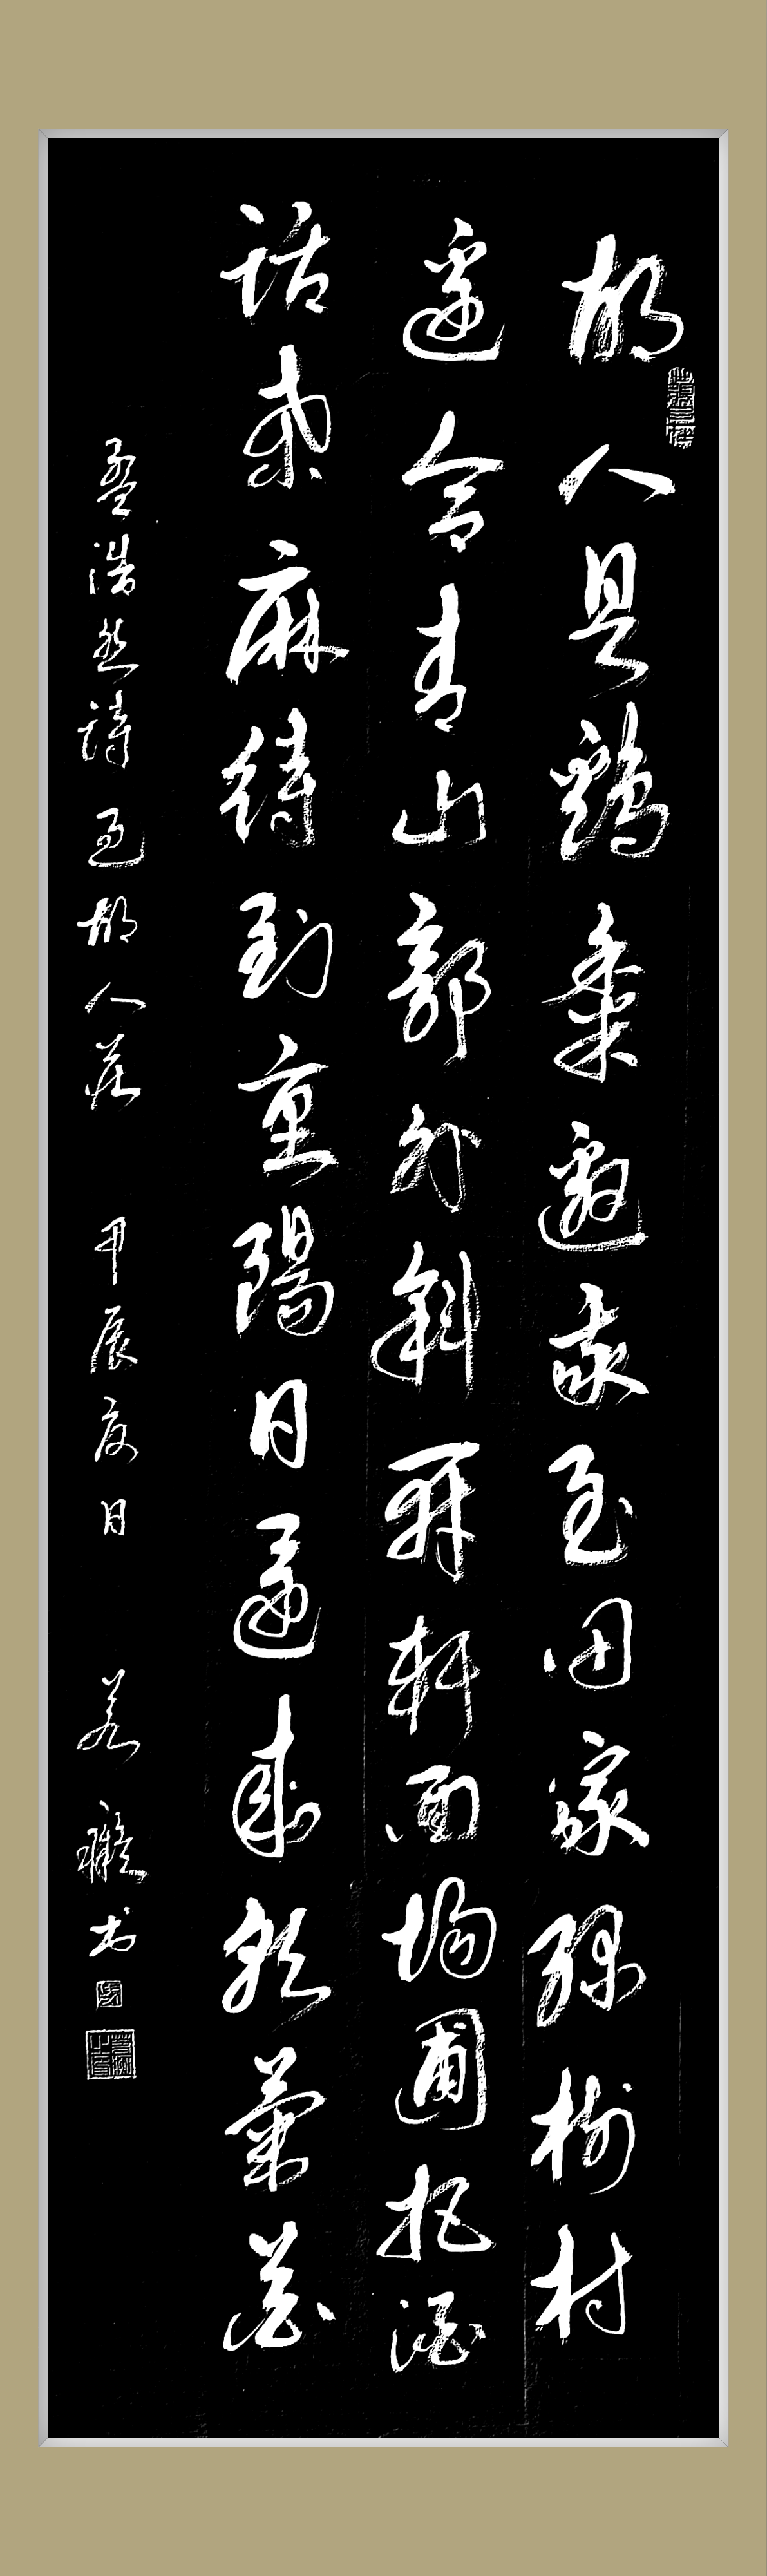 故人具鷄黍邀我至田家綠樹村
邊合青山郭外斜開軒面場圃把酒
話桑麻待到重陽日還來就菊花
孟浩然詩過故人莊 甲辰夏月 若書